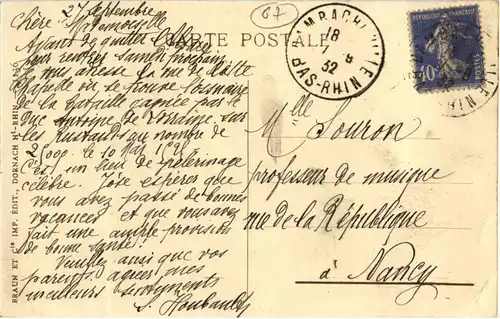 27 Septembre
67
CARTE POSTALE
18
7
32
BAS-RHIN
RÉPUBLIQUE FRANÇAISE
POSTES
40c
Chère Demoiselle
Avant de quitter
pour rentrer Samedi prochain
je vous adresse la vue de cette
Chapelle où se trouve l'ossuaire
de la bataille gagnée par le
Duc Antoine de Lorraine sur
les Rustauds au nombre de
C'est un lieu de pèlerinage
célèbre. J'ose espérer que
vous avez passé de bonnes
vacances et que vous avez
fait une autre provision
de bonne santé!
Veuillez ainsi que vos
parents agréer mes
meilleurs sentiments
Melle Souron
professeur de musique
rue de la République
à Nancy
BRAUN ET Cie IMP. ÉDIT., DORNACH Ht-RHIN